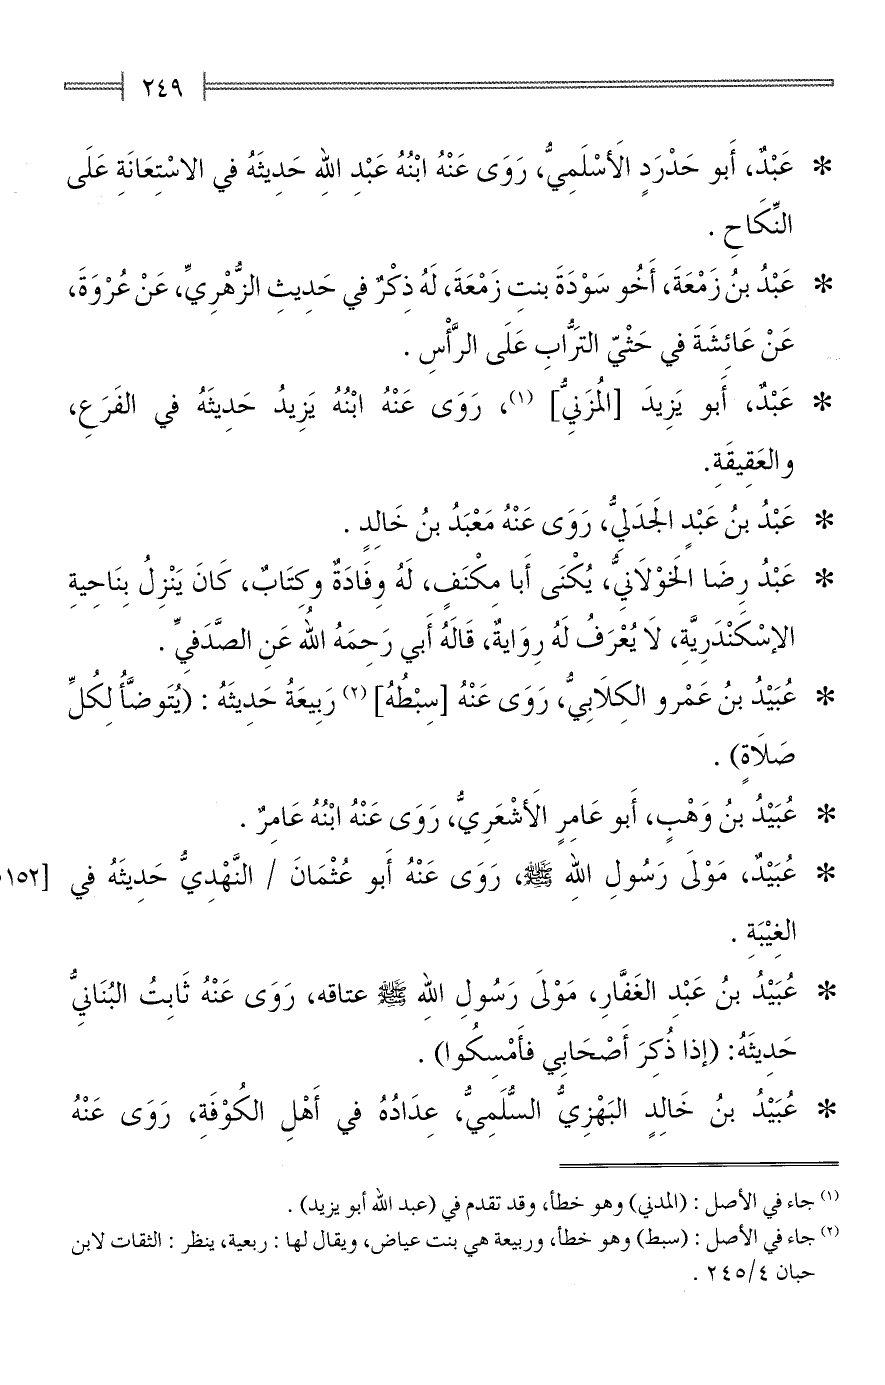 ٢٤٩
* عَبْدٌ، أَبو حَدْرَدٍ الأَسْلَمِيُّ، رَوَى عَنْهُ ابْنُهُ عَبْدِ اللهِ حَدِيثَهُ في الاسْتِعَانَةِ عَلَى
النِّكَاحِ .
* عَبْدُ بنُ زَمْعَةَ، أَخُو سَوْدَةَ بنتِ زَمْعَةَ، لَهُ ذِكْرٌ في حَدِيثِ الزُّهْرِيِّ، عَنْ عُرْوَةَ،
عَنْ عَائِشَةَ في حَثْيِّ الترَّابِ عَلَى الرَّأْسِ .
* عَبْدٌ، أَبو يَزِيدَ [المُزَنِيُّ] (١)، رَوَى عَنْهُ ابْنُهُ يَزِيدُ حَدِيثَهُ في الفَرَعِ،
والعَقِيقَةِ.
* عَبْدُ بنُ عَبْدٍ الجَدَلِيُّ، رَوَى عَنْهُ مَعْبَدُ بنُ خَالدٍ .
* عَبْدُ رِضَا الخَوْلَانِيُّ، يُكْنَى أَبا مِكْنَفٍ، لَهُ وِفَادَةٌ وكِتَابٌ، كَانَ يَنْزِلُ بِنَاحِيةِ
الإسْكَنْدَرِيَّةِ، لَا يُعْرَفُ لَهُ رِوايَةٌ، قَالَهُ أَبي رَحِمَهُ اللهُ عَنِ الصَّدَفيِّ .
* عُبَيْدُ بنُ عَمْرو الكِلَابِيُّ، رَوَى عَنْهُ [سِبْطُهُ] (٢) رَبِيعَةُ حَدِيثَهُ : (يُتَوضَّأُ لِكُلِّ
صَلَاةٍ) .
* عُبَيْدُ بنُ وَهْبٍ، أَبو عَامِرٍ الأَشْعَرِيُّ، رَوَى عَنْهُ ابْنُهُ عَامِرٌ .
* عُبَيْدٌ، مَوْلَى رَسُولِ اللهِ ﷺ، رَوَى عَنْهُ أَبو عُثْمَانَ / النَّهْدِيُّ حَدِيثَهُ في [١٥٢
الغِيْبَةِ .
* عُبَيْدُ بنُ عَبْدِ الغَفَّارِ، مَوْلَى رَسُولِ اللهِ ﷺ عتاقه، رَوَى عَنْهُ ثَابتُ البُنَانِيُّ
حَدِيثَهُ: (إذا ذُكِرَ أَصْحَابِي فأَمْسِكُوا) .
* عُبَيْدُ بنُ خَالدٍ البَهْزِيُّ السُّلَمِيُّ، عِدَادُهُ في أَهْلِ الكُوْفَةِ، رَوَى عَنْهُ
(١) جاء في الأصل : (المدني) وهو خطأ، وقد تقدم في (عبد الله أبو يزيد) .
(٢) جاء في الأصل : (سبط) وهو خطأ، وربيعة هي بنت عياض، ويقال لها : ربعية، ينظر : الثقات لابن
حبان ٢٤٥/٤ .